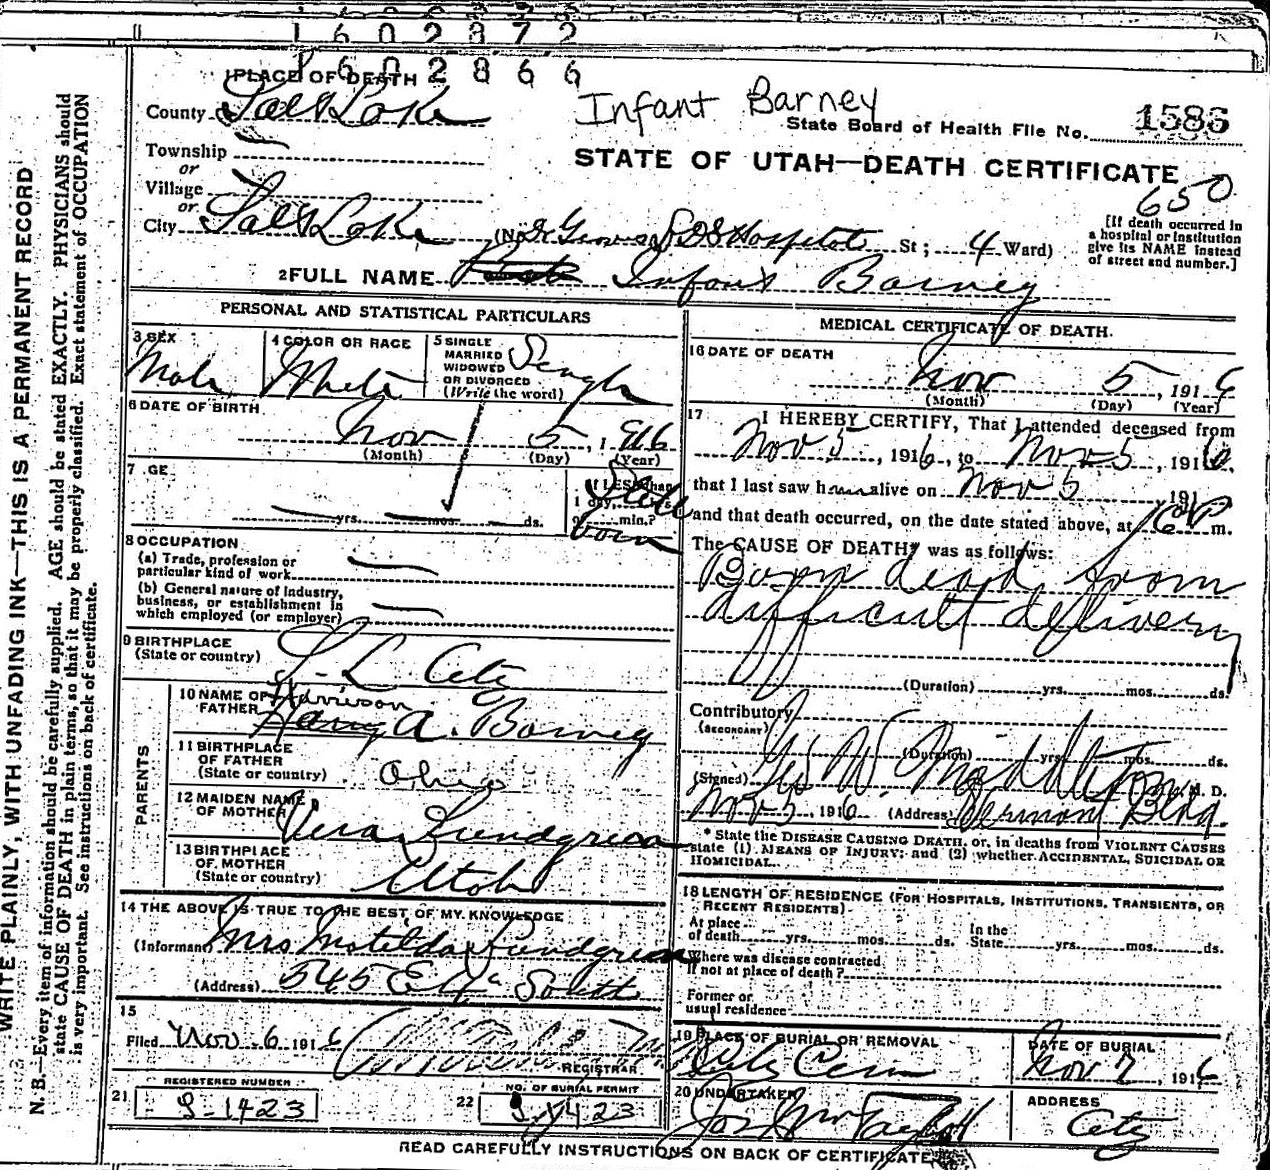 1602872
1602866
1 PLACE OF DEATH
County Salt Lake
Infant Barney
State Board of Health File No. 1586
Township
or
Village
or
City Salt Lake
STATE OF UTAH—DEATH CERTIFICATE
650
(No. LDS Hospital St; 4 Ward)
[If death occurred in a hospital or institution give its NAME instead of street and number.]
2 FULL NAME Infant Barney
PERSONAL AND STATISTICAL PARTICULARS
3 SEX
Male
4 COLOR OR RACE
White
5 SINGLE
MARRIED
WIDOWED
OR DIVORCED
(Write the word)
Single
6 DATE OF BIRTH
Nov 5, 1916
(Month) (Day) (Year)
7 AGE
yrs. mos. ds.
If LESS than
1 day, hrs.
or min.?
Still
born
8 OCCUPATION
(a) Trade, profession or
particular kind of work
(b) General nature of industry,
business, or establishment in
which employed (or employer)
9 BIRTHPLACE
(State or country)
S. L. City
PARENTS
10 NAME OF
FATHER
Harrison
Harry A. Barney
11 BIRTHPLACE
OF FATHER
(State or country)
Ohio
12 MAIDEN NAME
OF MOTHER
Vera Lundgreen
13 BIRTHPLACE
OF MOTHER
(State or country)
Utah
14 THE ABOVE IS TRUE TO THE BEST OF MY KNOWLEDGE
(Informant) Mrs Matilda Lundgreen
(Address) 545 South
15
Filed Nov 6 1916
REGISTRAR
REGISTERED NUMBER
21 S-1423
NO. OF BURIAL PERMIT
22 S-1423
MEDICAL CERTIFICATE OF DEATH.
16 DATE OF DEATH
Nov 5, 1916
(Month) (Day) (Year)
17 I HEREBY CERTIFY, That I attended deceased from
Nov 5, 1916, to Nov 5, 1916,
that I last saw h alive on Nov 5 191
and that death occurred, on the date stated above, at m.
The CAUSE OF DEATH* was as follows:
Born dead from
difficult delivery
(Duration) yrs. mos. ds.
Contributory
(SECONDARY)
(Duration) yrs. mos. ds.
(Signed) Geo W. Middleton M. D.
Nov 5, 1916 (Address) Vermont Bldg.
* State the DISEASE CAUSING DEATH, or, in deaths from VIOLENT CAUSES
state (1) MEANS OF INJURY; and (2) whether ACCIDENTAL, SUICIDAL OR
HOMICIDAL.
18 LENGTH OF RESIDENCE (FOR HOSPITALS, INSTITUTIONS, TRANSIENTS, OR
RECENT RESIDENTS)
At place
of death yrs. mos. ds. In the
State yrs. mos. ds.
Where was disease contracted
if not at place of death?
Former or
usual residence
19 PLACE OF BURIAL OR REMOVAL
City Cem
DATE OF BURIAL
Nov 7, 1916
20 UNDERTAKER
Jos Wm Taylor
ADDRESS
City
READ CAREFULLY INSTRUCTIONS ON BACK OF CERTIFICATE
WRITE PLAINLY, WITH UNFADING INK—THIS IS A PERMANENT RECORD
N. B.—Every item of information should be carefully supplied. AGE should be stated EXACTLY. PHYSICIANS should
state CAUSE OF DEATH in plain terms, so that it may be properly classified. Exact statement of OCCUPATION
is very important. See instructions on back of certificate.